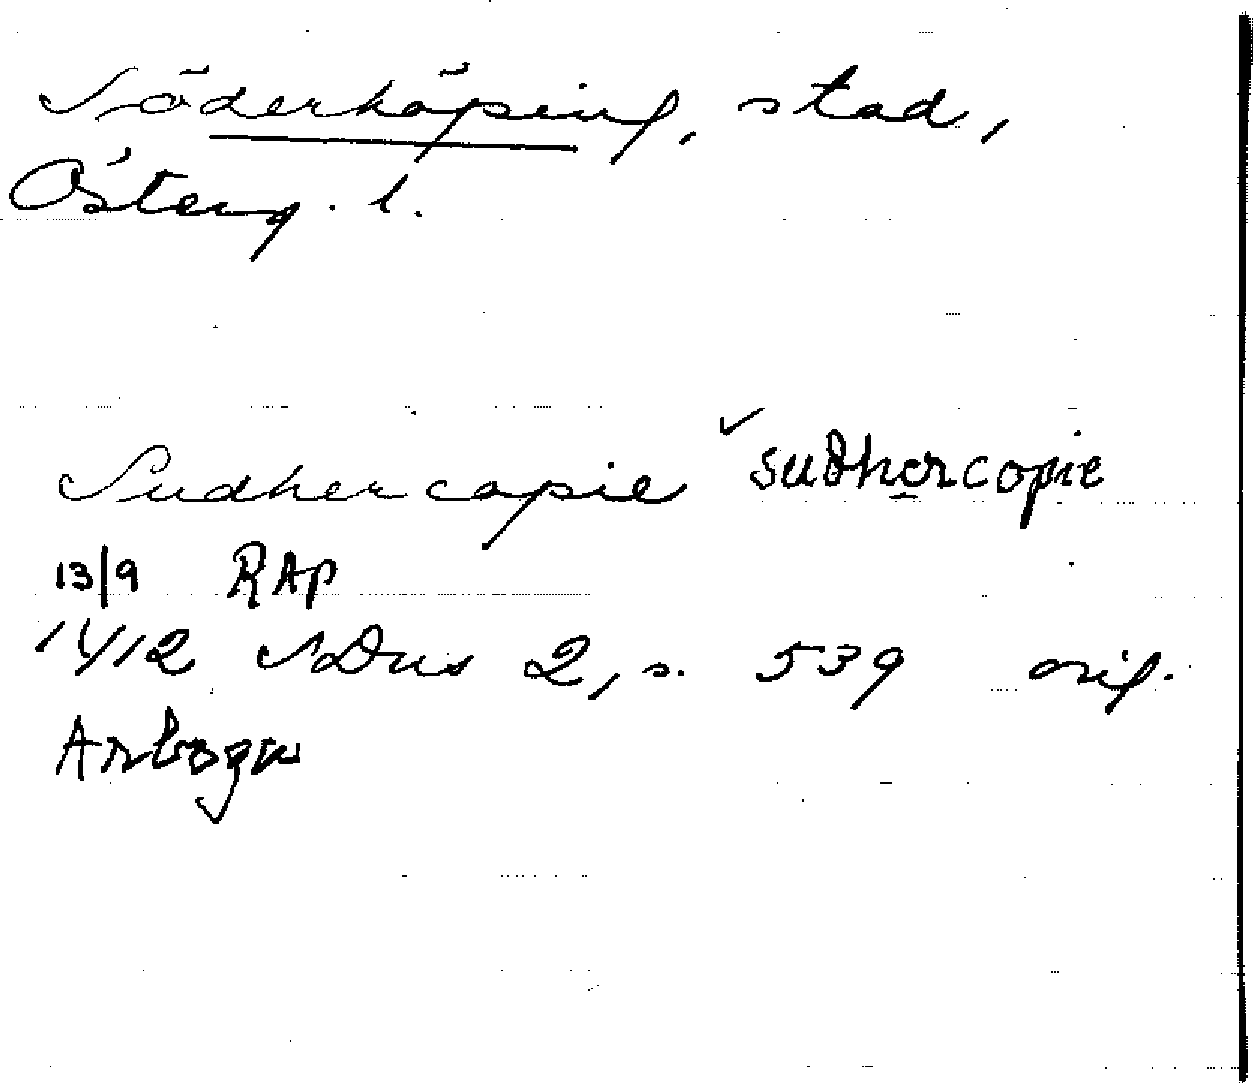 Söderköping, stad,
Österg. l.
Sudhercopie sudhercopie
13/9 RAP
1412 SDns 2, s. 539 orig.
Arboga